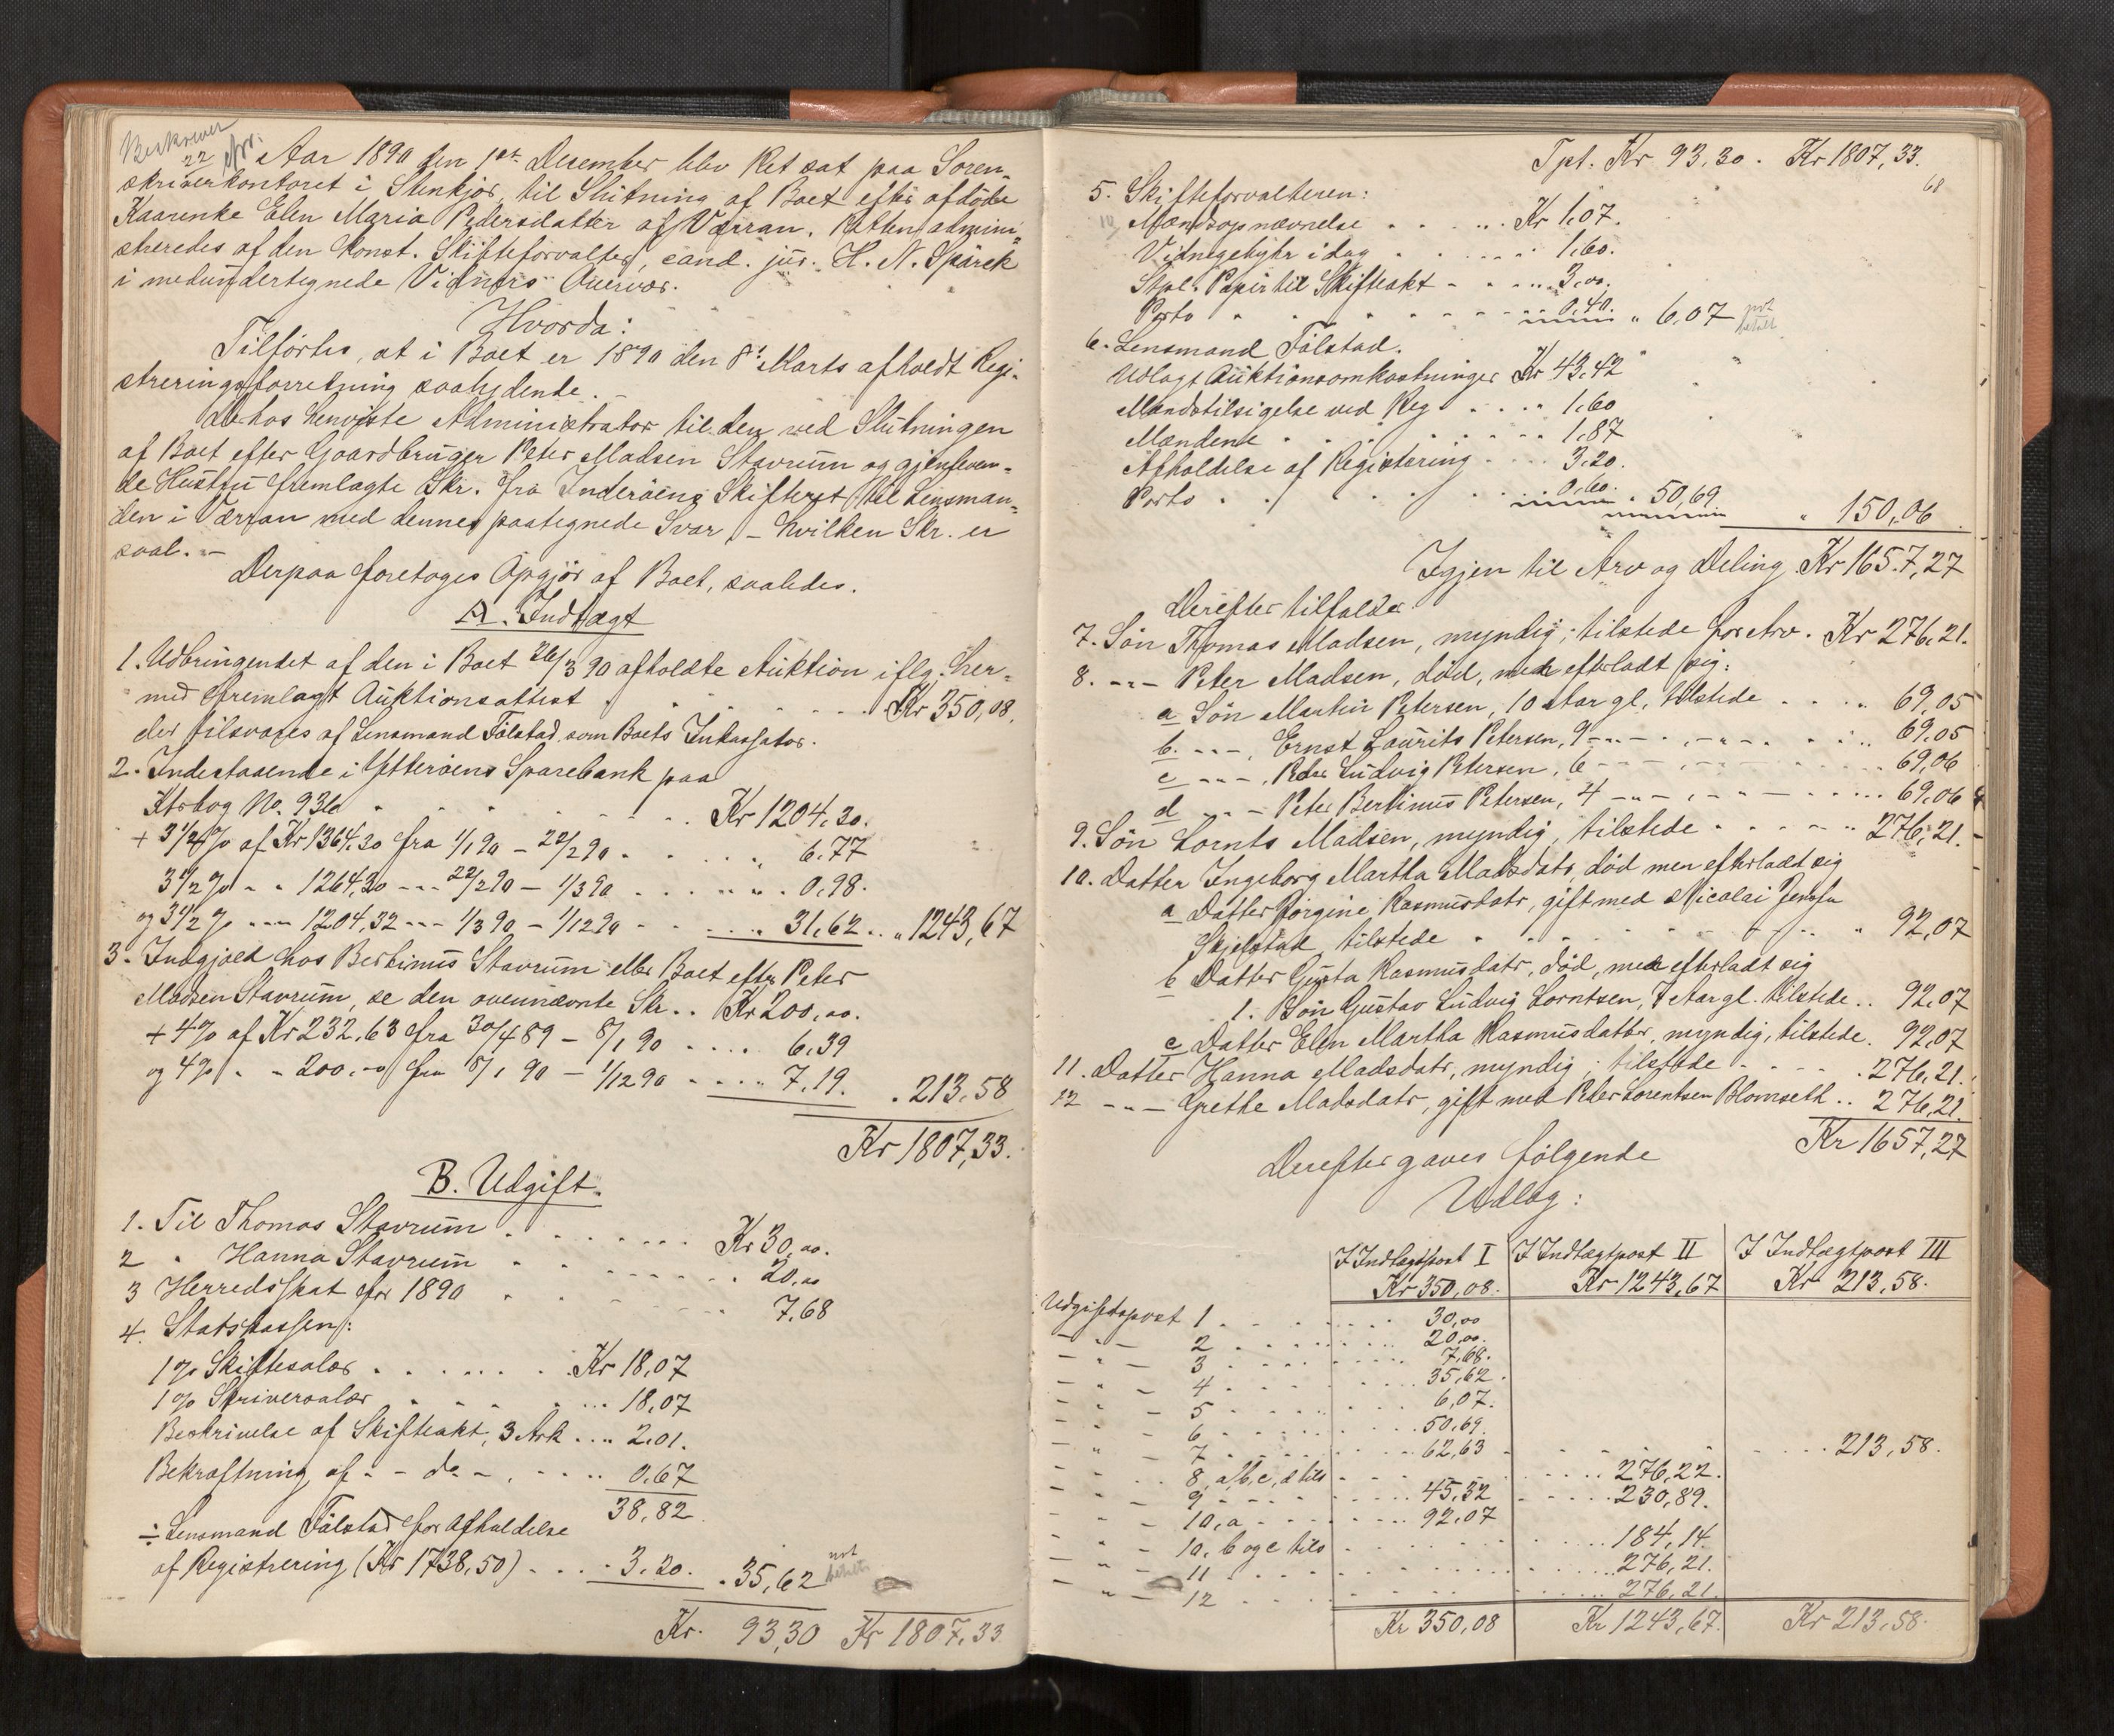 Beskreven
22
Aar 1890 den 1ste Desember blev Ret sat paa Soren-
skriverkontoret i Stenkjær, til Slutning af Boet efter afdøde
Kaarenke Elen Maria Pedersdatter af Værran. Retten admini-
streredes af den Konst. Skifteforvalter, cand. jur. H. N. Spärck
i medundertegnede Vidners Overvær.
Hvorda:
Tilførtes, at i Boet er 1890 den 8de Marts afholdt Regi-
streringsforretning saalydende.
Derhos henviste Administrator til den ved Slutningen
af Boet efter Gaardbruger Peter Madsen Stavrum og gjenleven-
de Hustru fremlagte Skr. fra Inderøens Skifteret til Lensman-
den i Værran med dennes paategnede Svar, - hvilken Skr. er
saal. -
Derpaa foretoges Opgjør af Boet, saaledes.
A. Indtægt
1. Udbringendet af den i Boet 26/3 90 afholdte Auktion iflg. her-
med fremlagt Auktionsattest . . . Kr 350,08.
der tilsvares af Lensmand Følstad som Boets Inkassator.
2. Indestaaende i Ytterøens Sparebank paa
Ktrbog No. 936 . . . Kr 1204,30.
+ 3 1/2 % af Kr 1364,30 fra 1/1 90 - 22/2 90 . . . „ 6,77
3 1/2 % - „ 1264,30 - „ - 22/2 90 - 1/3 90 . . . „ 0,98.
og 3 1/2 % - „ - 1204,32 - „ - 1/3 90 - 1/12 90 . . . „ 31,62 . . „ 1243,67
3. Indgjæld hos Bertinus Stavrum eller Boet efter Peter
Madsen Stavrum, se den ovennævnte Skr. . Kr 200,00.
+ 4% af Kr 232,63 fra 30/4 89 - 8/1 90 . . . . 6,39
og 4% „ - 200,00 fra 8/1 90 - 1/12 90 . . . . 7,19. . 213,58
Kr 1807,33.
B. Udgift.
1. Til Thomas Stavrum . . . Kr 30,00.
2 „ Hanna Stavrum . . . 20,00
3 Herredsskat for 1890 . . . 7,68
4. Statskassen:
1% Skiftesalær . . . Kr 18,07
1% Skriversalær . . . 18,07
Beskrivelse af Skifteakt, 3 Ark . . . . 2,01.
Bekræftning af - - do - . . . 0,67
38,82
÷ Lensmand Følstad for Afholdelse
af Registrering (Kr 1738,50) . . . 3,20. . 35,62
Kr. 93,30 Kr 1807,33
Tpt. Kr 93,30. Kr 1807,33.
68
5. Skifteforvalteren:
Mændsopnævnelse . . . Kr 1,07.
Vidnegebyhr idag . . . 1,60.
Stpl. Papir til Skifteakt - . . . 3,00.
Porto . . . 0,40. „ 6,07
6. Lensmand Følstad.
Udlagt Auktionsomkostninger Kr 43,42
Mændstilsigelse ved Reg . . . 1,60
Mændene . . . 1,87
Afholdelse af Registrering . . . 3,20.
Porto . . . 0,60. . 50,69
„ 150,06
Igjen til Arv og Deling Kr 1657,27
Derefter tilfalder
7. Søn Thomas Madsen, myndig; tilstede for Arv. Kr 276,21.
8. - „ - Peter Madsen, død, men efterladt sig:
a Søn Martin Petersen, 10 Aar gl. tilstede . . . 69,05
b. - „ - , Ernst Laurits Petersen, 9 - „ - . , - „ - . . . 69,05
c - „ - , Peder Ludvig Petersen, 6 - - - , - - . . . 69,06
d - „ - Peter Bertinus Petersen, 4 - „ - , - „ - . . . 69,06
9. Søn Lornts Madsen, myndig, tilstede . . . 276,21.
10. Datter Ingeborg Martha Madsdatr, død men efterladt sig
a Datter Jørgine Rasmusdatr, gift med Nicolai Jenssen
Skjelstad, tilstede . . . 92,07
b Datter Gusta Rasmusdatr, død, men efterladt sig
1. Søn Gustav Ludvig Lorntsen, 7 Aar gl. tilstede . . 92,07
c Datter Elen Martha Rasmusdatter, myndig, tilstede. 92,07
11. Datter Hanna Madsdatr, myndig; tilstede . . . 276,21.
12 - „ - Grethe Madsdatr, gift med Peder Lorentsen Blomseth . . 276,21.
Kr 1657,27
Derefter gaves følgende
Udlæg:
I Indtægtspost I I Indtægtpost II I Indtægtpost III
Kr 350,08. Kr 1243,67 Kr 213,58.
Udgiftspost 1 . . . 30,00
- „ - 2 . . . 20,00.
- „ - 3 . . . 7,68.
- „ - 4 . . . 35,62.
- „ - 5 . . . 6,07.
- „ - 6 . . . 50,69.
- „ - 7 . . . 62,63 . . . 213,58.
- „ - 8, a, b, c, d tils . . . 276,22.
- „ - 9 . . . 45,32 . . . 230,89.
- „ - 10, a . . . 92,07
- „ - 10. b og c tils . . . 184,14.
- „ - 11 . . . 276,21.
- „ - 12 . . . 276,21.
Kr 350,08 Kr 1243,67. Kr 213,58.